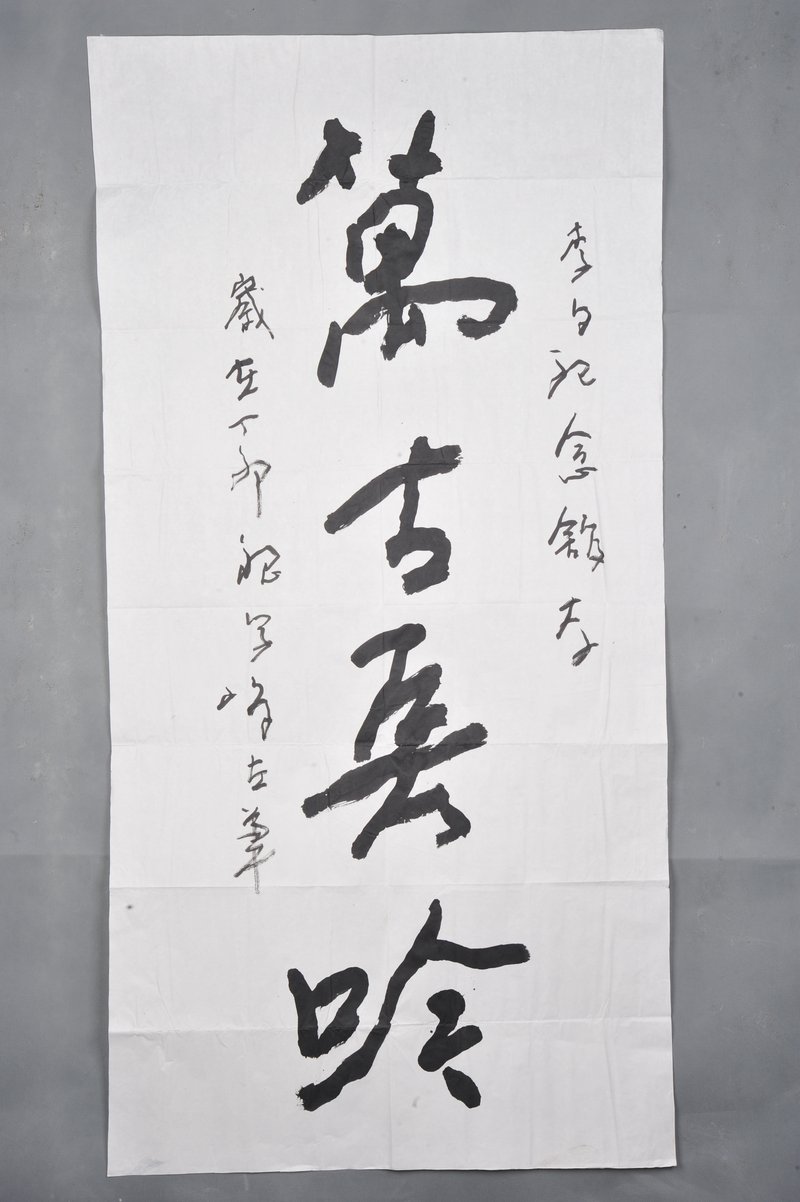 李白紀念館存
萬古長吟
歲在丁卯峰左筆